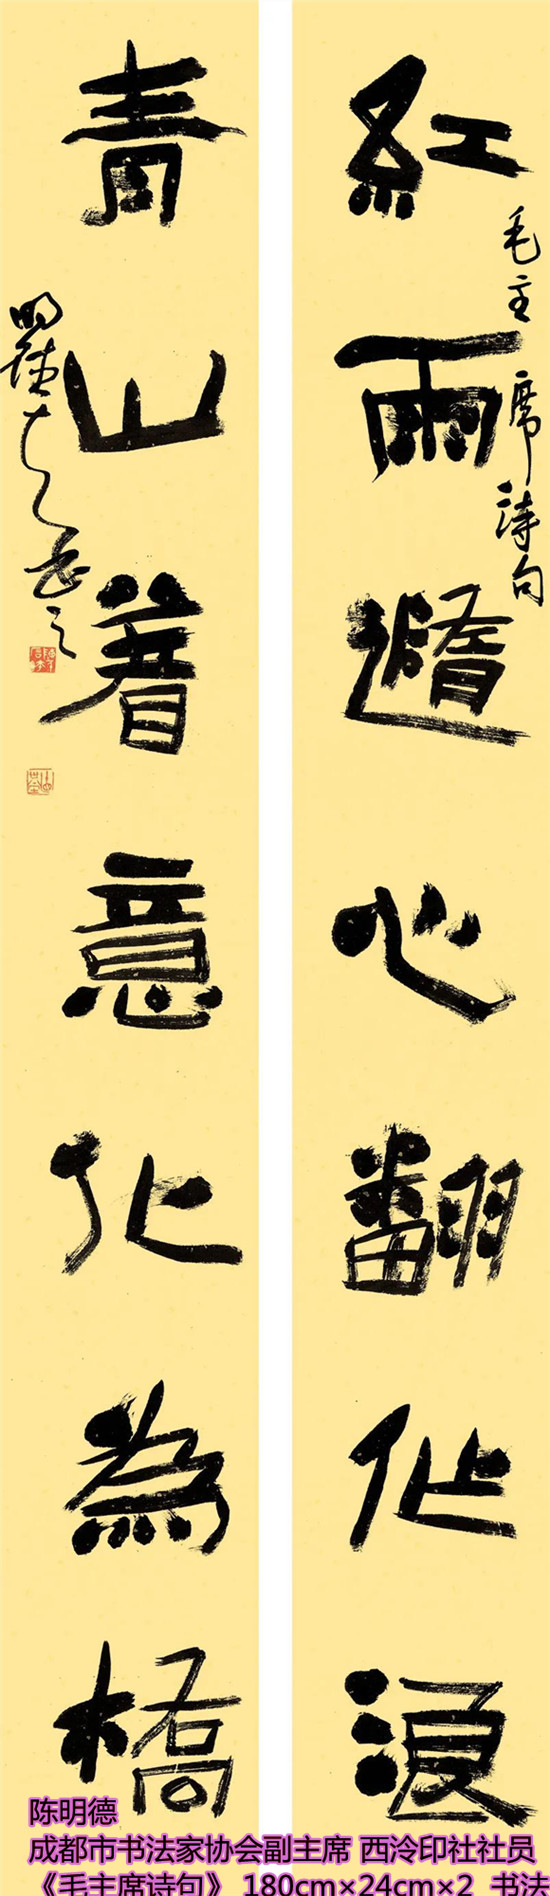 紅雨隨心翻作浪
毛主席诗句
青山着意化為橋
明德
书之
陈明德
成都市书法家协会副主席 西泠印社社员
《毛主席诗句》 180cm×24cm×2 书法